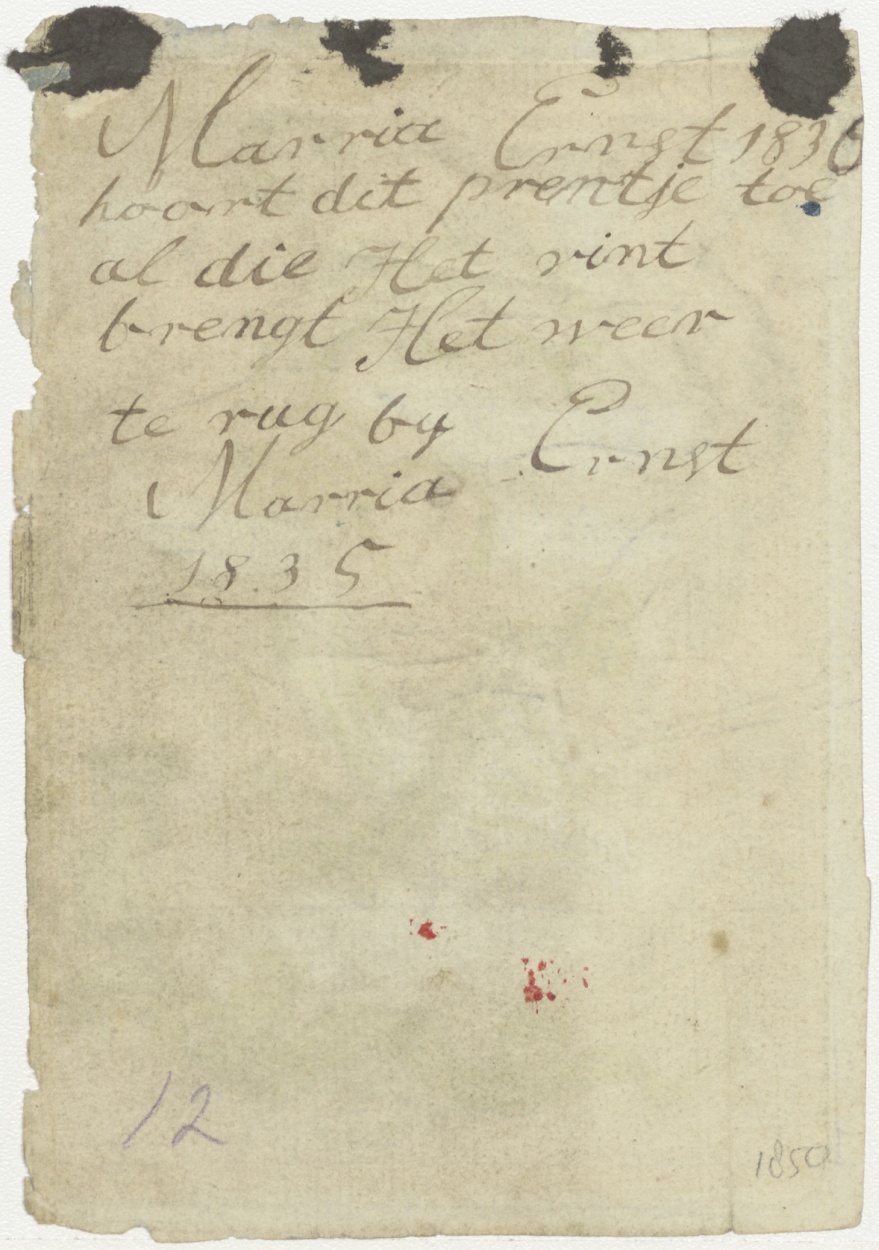 Marria Ernst 1836
hoort dit prentje toe
al die Het vint
brengt Het weer
te rug by Ernst
Marria
1835
12
1850